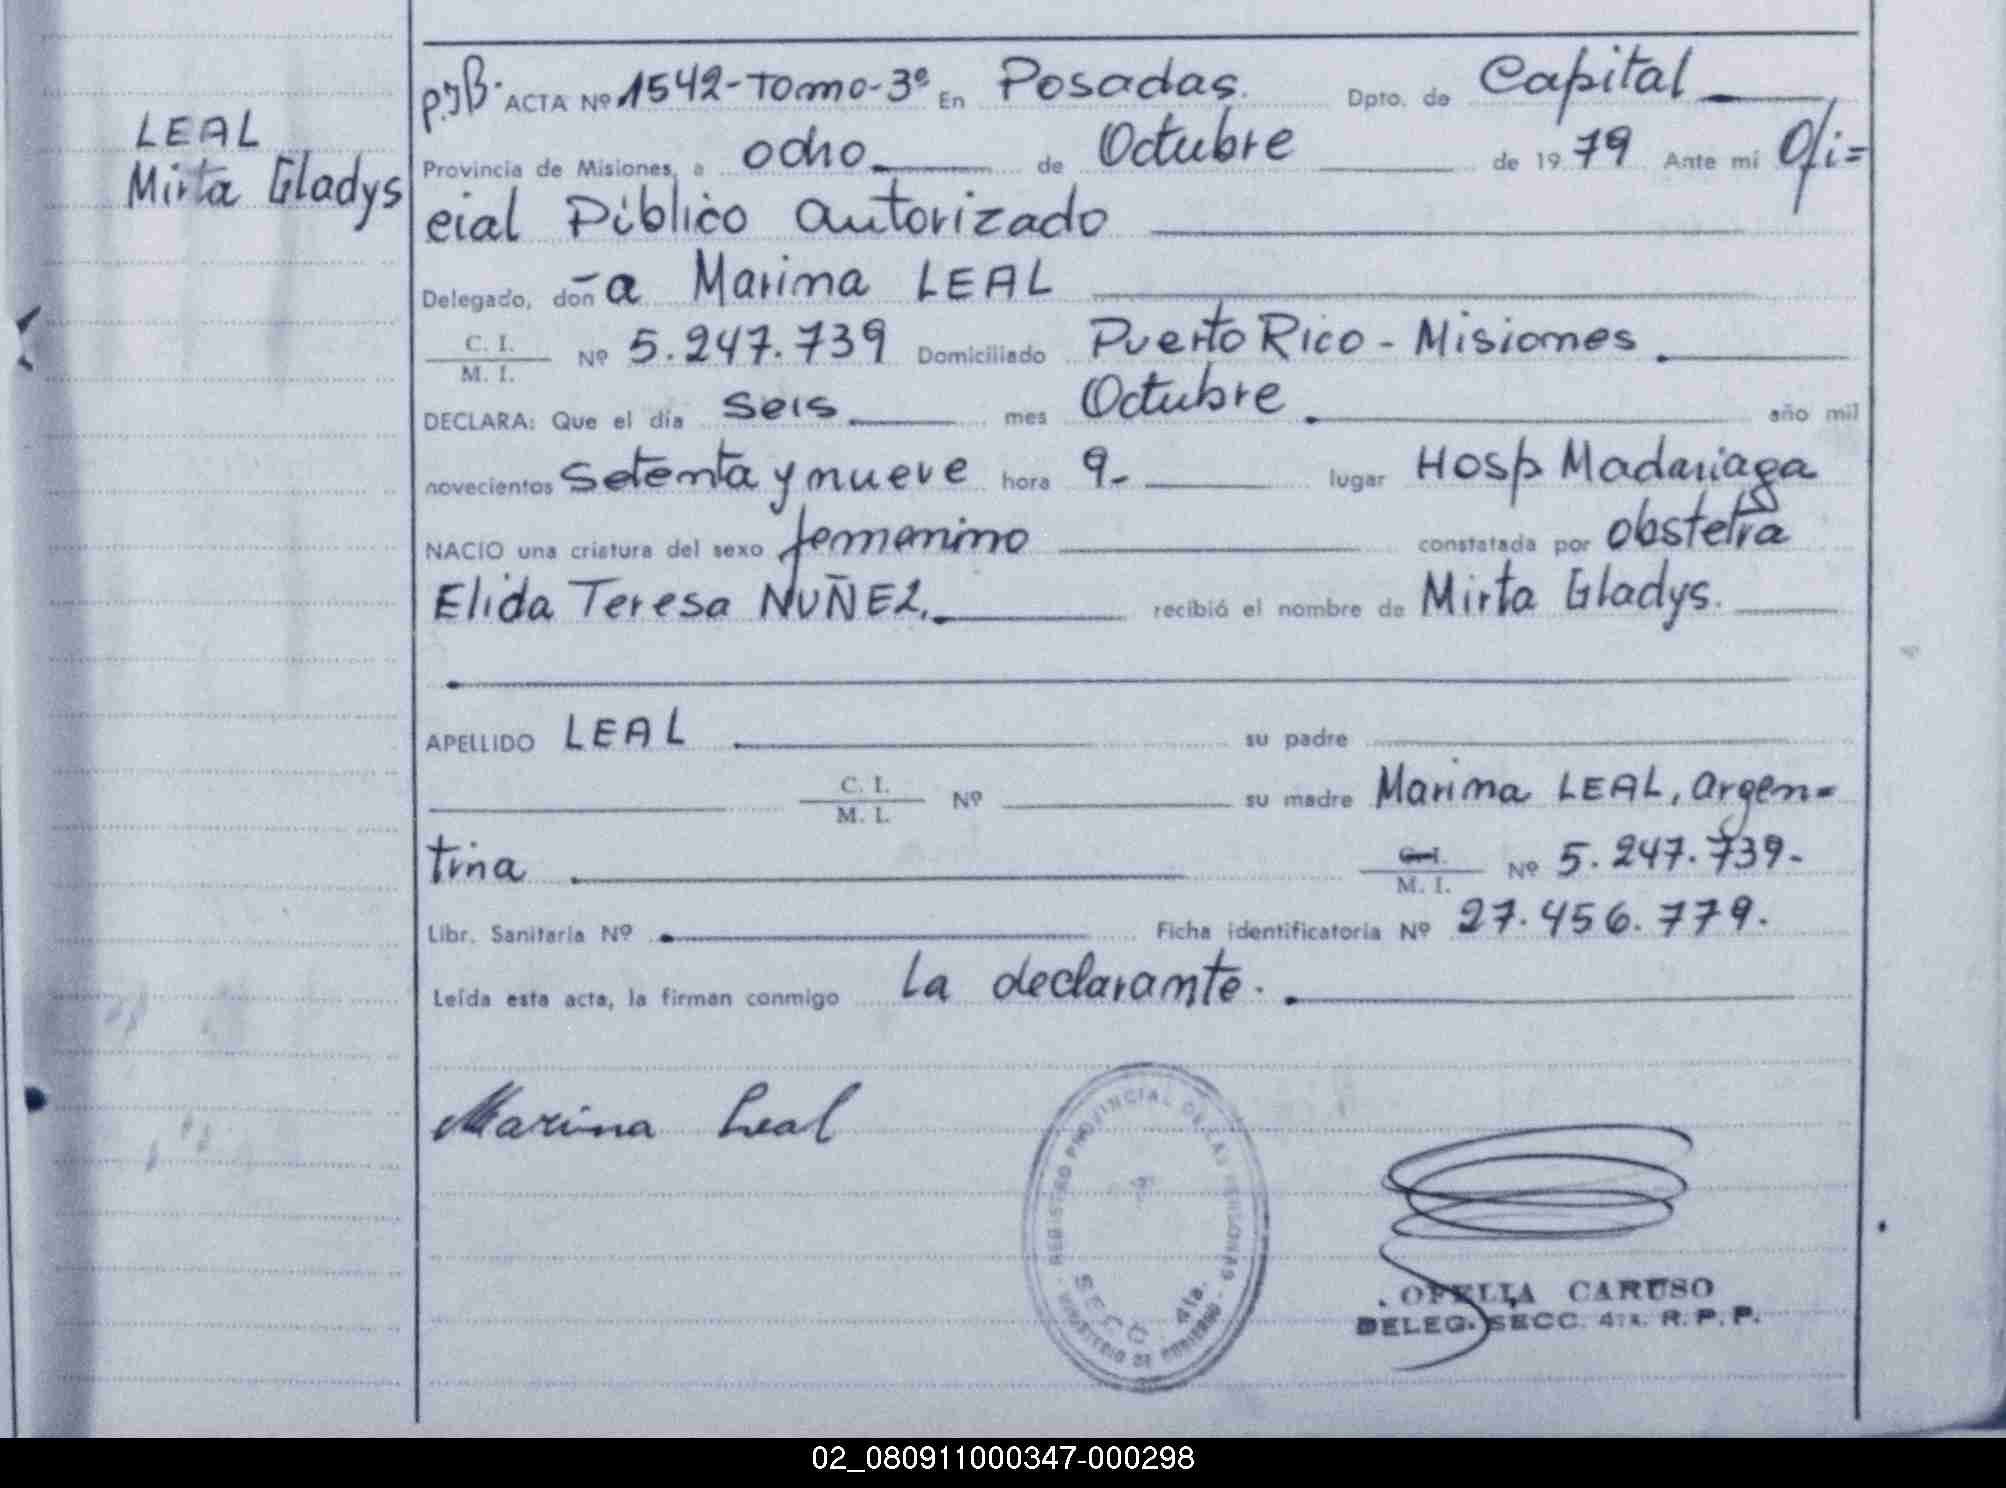 LEAL
Mirta Gladys
ACTA Nº 1542-Tomo-3º En Posadas. Dpto. de Capital
Provincia de Misiones, a ocho de Octubre de 1979 Ante mí Ofi=
cial Público autorizado
Delegado, don-a Marina LEAL
C. I.
M. I. Nº 5.247.739 Domiciliado Puerto Rico - Misiones.
DECLARA: Que el día seis mes Octubre. año mil
novecientos setenta y nueve hora 9- lugar Hosp Madariaga
NACIO una criatura del sexo femenino constatada por obstetra
Elida Teresa NUÑEZ. recibió el nombre de Mirta Gladys.
APELLIDO LEAL su padre
C. I.
M. I. Nº su madre Marina LEAL, argen=
tina C. I.
M. I. Nº 5.247.739-
Libr. Sanitaria Nº Ficha identificatoria Nº 27.456.779.
Leída esta acta, la firman conmigo la declarante.
Marina Leal
REGISTRO PROVINCIAL DE LAS PERSONAS
SECC. 4ta.
MINISTERIO DE GOBIERNO
OFELIA CARUSO
DELEG. SECC. 4TA. R. P. P.
02_080911000347-000298